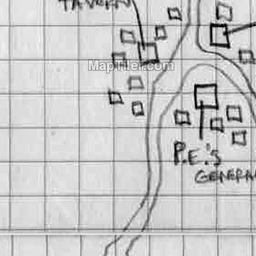 TAVERN
MapTiler.com
P.E.'s
GENERA